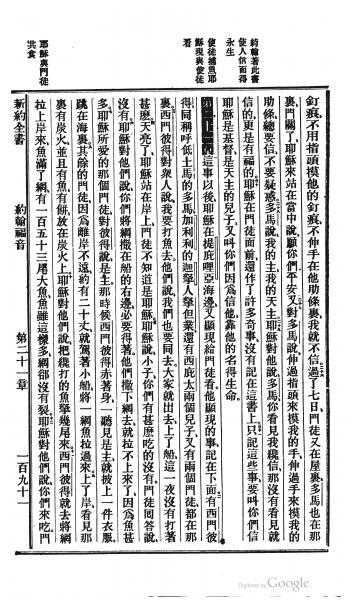 約翰著此書
使人信而得
永生
使徒捕魚耶
穌現與使徒
看
耶穌與門徒
共食
釘痕不用指頭摸他的釘痕不伸手在他肋條裏我就不信過了七日門徒又在屋裏多馬也在那
裏門關了耶穌來站在當中說願你們平安又對多馬說伸過指頭來摸我的手伸過手來摸我的
肋條總要信不要疑惑多馬說我的主我的天主耶穌對他說多馬你看見我纔信那沒有看見就
信的更是有福的耶穌在門徒面前還作了許多奇事沒有記在這書上只記這些事要叫你們信
耶穌是基督是天主的兒子又叫你們因爲信他靠他的名得生命
第二十一章 這事以後耶穌在提庇哩亞海邊又顯現給門徒看他顯現的事記在下面有西門彼
得同稱呼低土馬的多馬加利利的迦拏人拏但業還有西庇太兩個兒子又有兩個門徒都在那
裏西門彼得對衆人說我要打魚去他們說我們也要同去大家就出去上了船這一夜沒有打著
甚麽天亮了耶穌站在岸上門徒不知道是耶穌耶穌說小子你們有甚麽吃的沒有門徒囘答說
沒有耶穌對他們說你們將網撒在船的右邊必要得著他們撒下網去就拉不上來了因爲魚甚
多耶穌所愛的那個門徒對彼得說是主那時候西門彼得赤著身一聽見是主就披上一件衣服
跳在海裏其餘的門徒因爲離岸不遠約有二十丈就駕著小船將一網魚拉過來上了岸看見那
裏有炭火並且有魚有餅放在炭火上耶穌對他們說把纔打的魚拏幾尾來西門彼得就去將網
拉上岸來魚滿了網有一百五十三尾大魚魚雖這樣多網卻沒有裂耶穌對他們說你們來吃門
新約全書
約翰福音
第二十一章
一百九十一
Digitized by Google